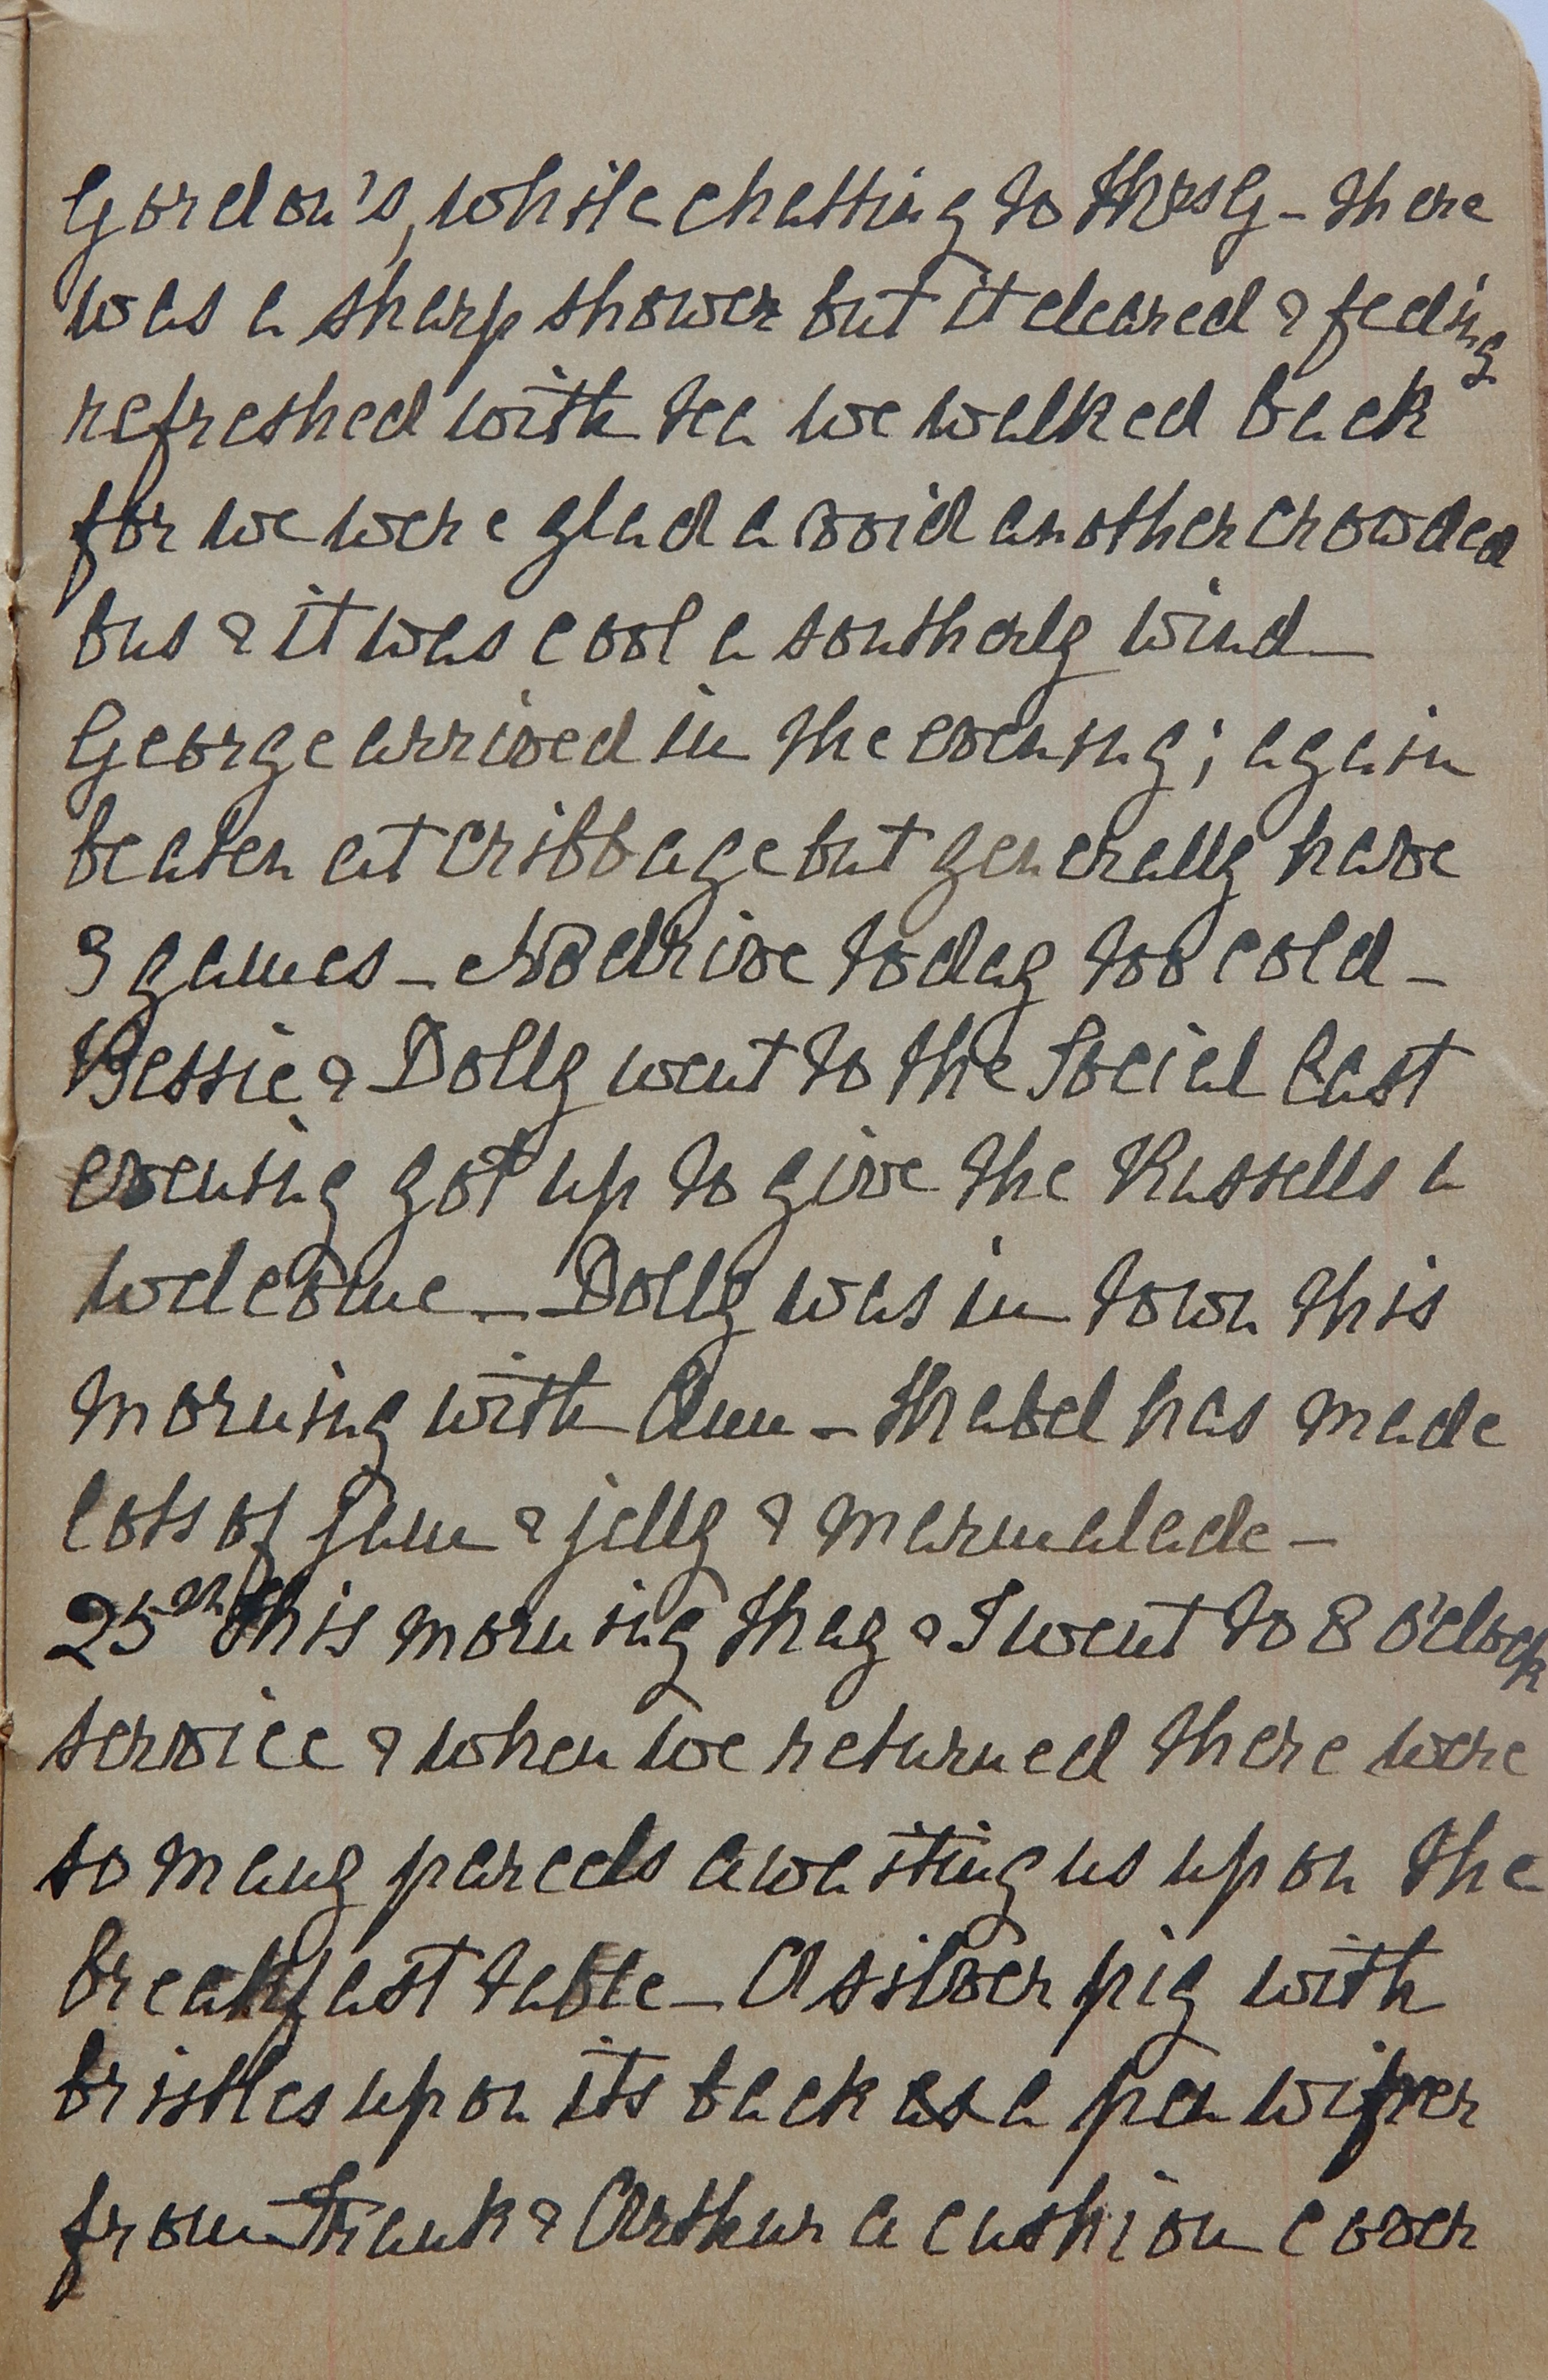 Gordon's, while chatting to Mrs G - there
was a sharp shower but it cleared & feeling
refreshed with tea we walked back
for we were glad avoid another crowded
bus & it was cool a southerly wind -
George arrived in the evening; again
beaten at cribbage but generally have
3 games - No drive today too cold -
Bessie & Dolly went to the Social last
evening got up to give the Russells a
welcome - Dolly was in town this
morning with Ann - Mabel has made
lots of jam & jelly & marmalade -
25th This morning May & I went to 8 o'clock
service & when we returned there were
so many parcels awaiting us upon the
breakfast table - A silver pig with
bristles upon its back as a pen wiper
from Frank & Arthur a cushion cover